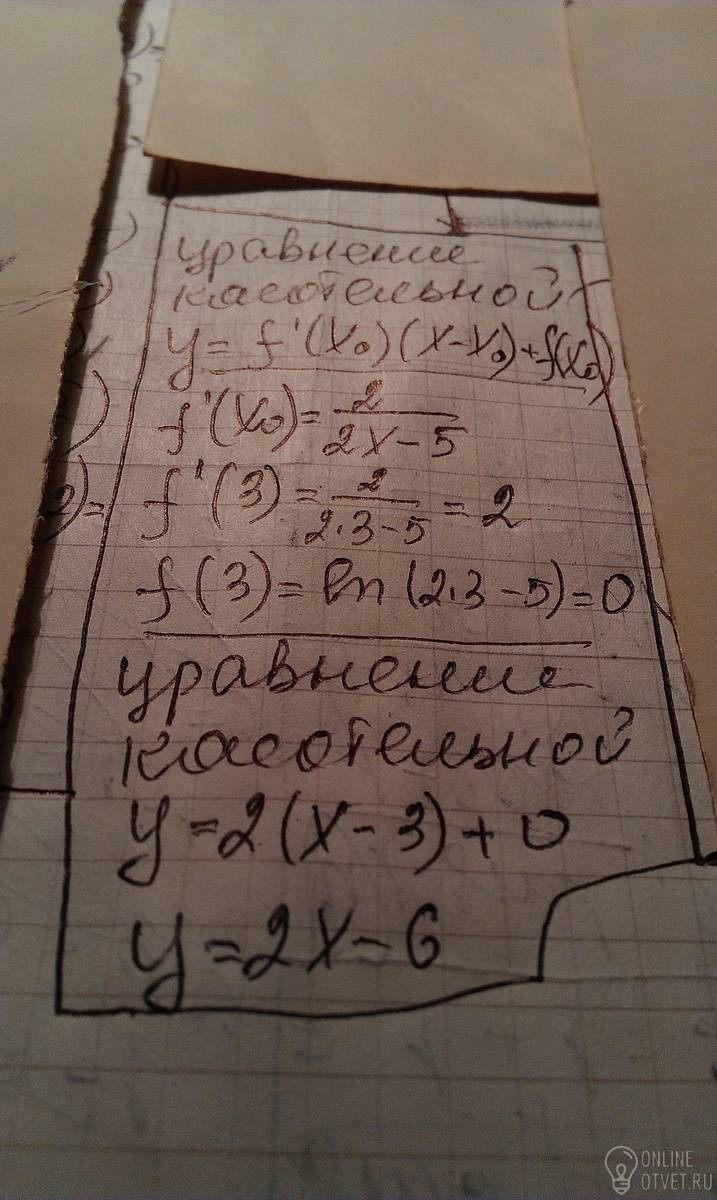 уравнение
касотельной
y = f'(x₀)(x-x₀)+f(x₀)
f'(x₀)= 2/(2x-5)
f'(3)= 2/(2·3-5) = 2
f(3)= ln(2·3-5)=0
уравнение
касотельной
y=2(x-3)+0
y=2x-6
ONLINE
OTVET.RU